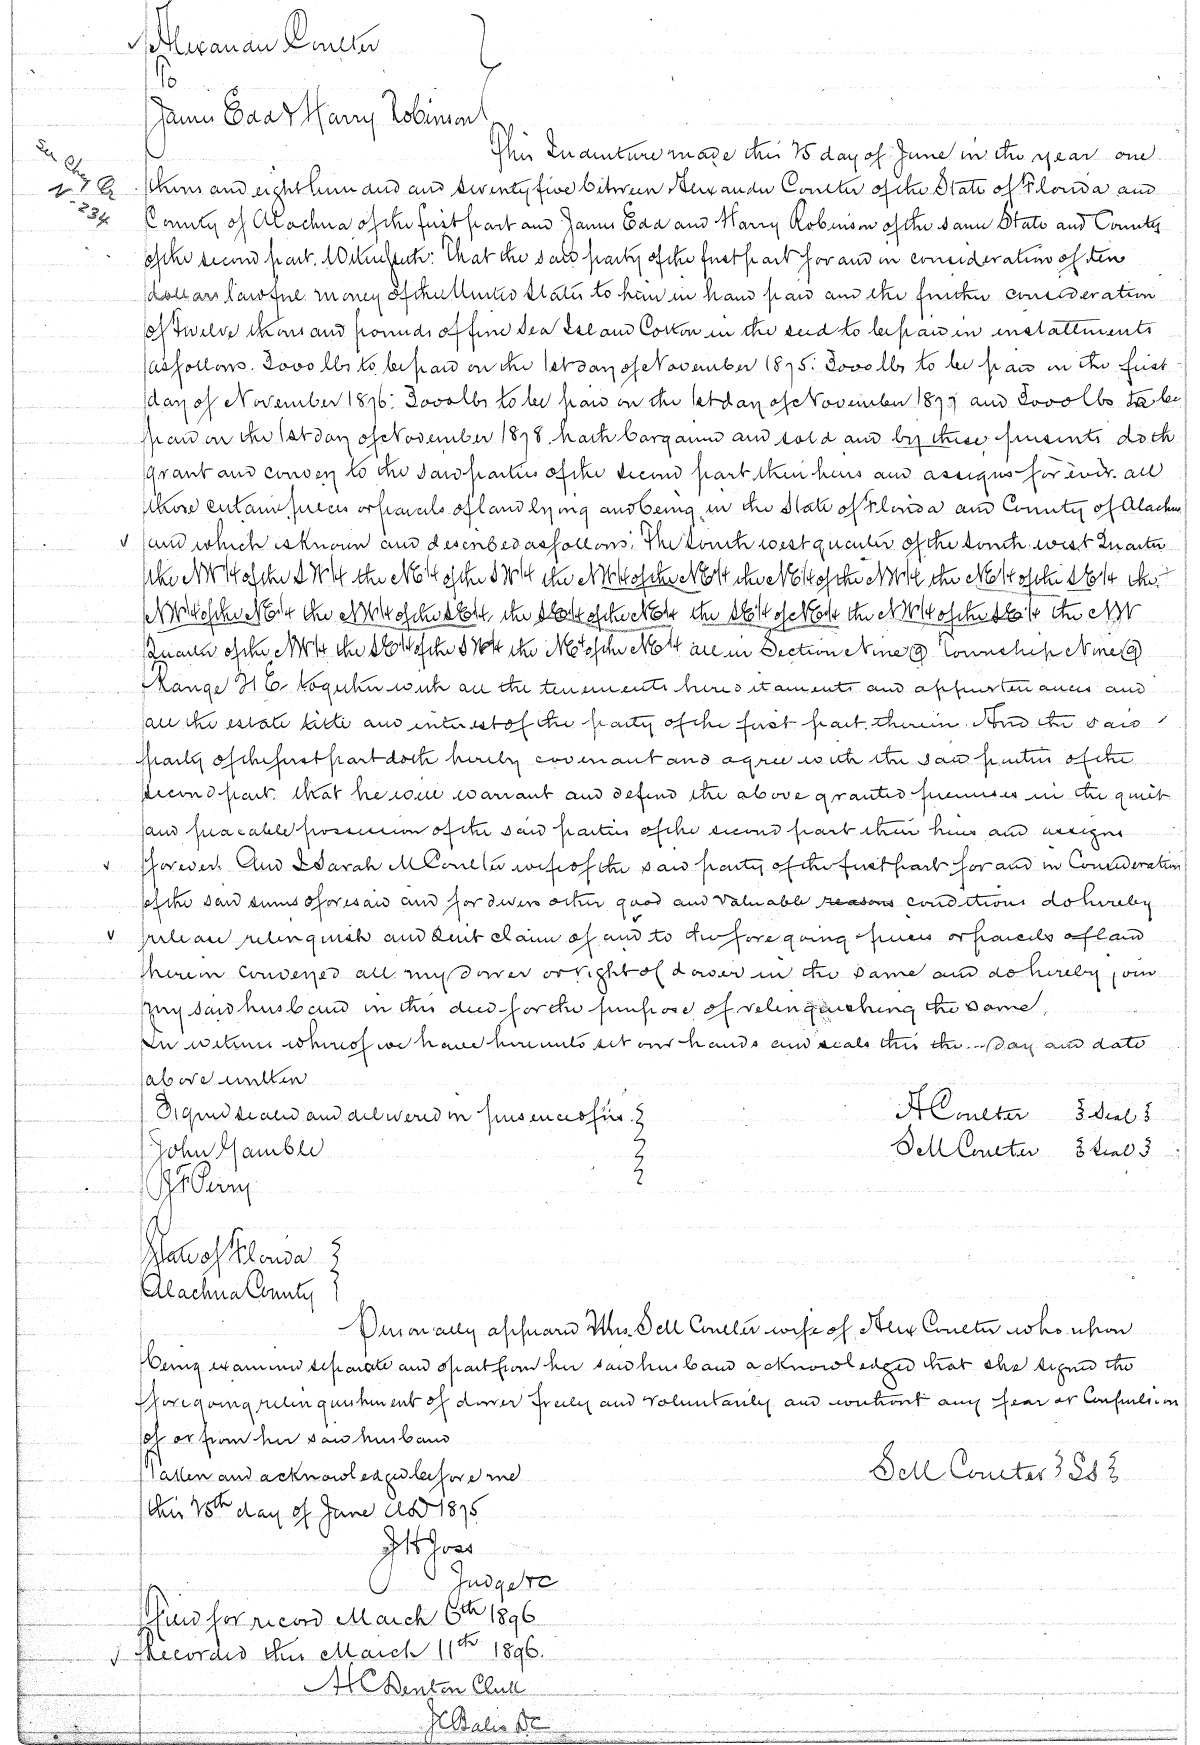 Alexander Coulter
To
James Edd & Harry Robinson
This Indenture made this 25 day of June in the year one
See Chey Co
N- 234
thous and eight hundred and seventy five between Alexander Coulter of the State of Florida and
County of Alachua of the first part and James Edd and Harry Robinson of the same State and County
of the second part. Witnesseth: That the said party of the first part for and in consideration of ten
dollars lawful money of the United States to him in hand paid and the further consideration
of Twelve thous and pounds of fine Sea Island Cotton in the seed to be paid in installments
as follows. 3000 lbs to be paid on the 1st day of November 1875: 3000 lbs to be paid on the first
day of November 1876: 3000 lbs to be paid on the 1st day of November 1877 and 3000 lbs to be
paid on the 1st day of November 1878. hath bargained and sold and by these presents doth
grant and convey to the said parties of the second part their heirs and assigns for ever. all
those certain pieces or parcels of land lying and being in the State of Florida and County of Alachua
and which is known and described as follows: The South west quarter of the South west Quarter
the NW¼ of the SW¼ the NE¼ of the SW¼ the NW¼ of the NE¼ the NE¼ of the NW¼ the NE¼ of the SE¼ the
NW¼ of the NE¼ the NW¼ of the SE¼ the SE¼ of the NE¼ the SE¼ of NE¼ the NW¼ of the SE¼ the NW
Quarter of the NW¼ the SE¼ of the SW¼ the NE¼ of the NE¼ all in Section Nine (9) Township Nine (9)
Range 21 E. together with all the tenements hereditaments and appurtenances and
all the estate title and interest of the party of the first part therein. And the said
party of the first part doth hereby covenant and agree with the said parties of the
second part. that he will warrant and defend the above granted premises in the quiet
and peacable possession of the said parties of the second part their heirs and assigns
forever. And I Sarah M Coulter wife of the said party of the first part for and in Consideration
of the said sums aforesaid and for divers other good and valuable reasons conditions do hereby
release relinquish and Quit claim of and to the fore going pieces or parcels of land
herein conveyed all my dower or right of dower in the same and do hereby join
my said husband in this deed for the purpose of relinquishing the same.
In witness whereof we have hereunto set our hands and seals this the .. day and date
above written
Signed sealed and delivered in presence of us.
A Coulter Seal
John Gamble
Sell Coulter Seal
Perry
State of Florida
Alachua County
Personally appeared Mrs. Sell Coulter wife of Alex Coulter who upon
being examined separate and apart from her said husband acknowledged that she signed the
foregoing relinquishment of dower freely and voluntarily and without any fear or Compulsion
of or from her said husband
Taken and acknowledged before me
Sell Coulter LS
this 25th day of June AD 1875
J H Goss
Judge &c
Filed for record March 6th 1896
Recorded this March 11th 1896.
H C Denton Clerk
DC